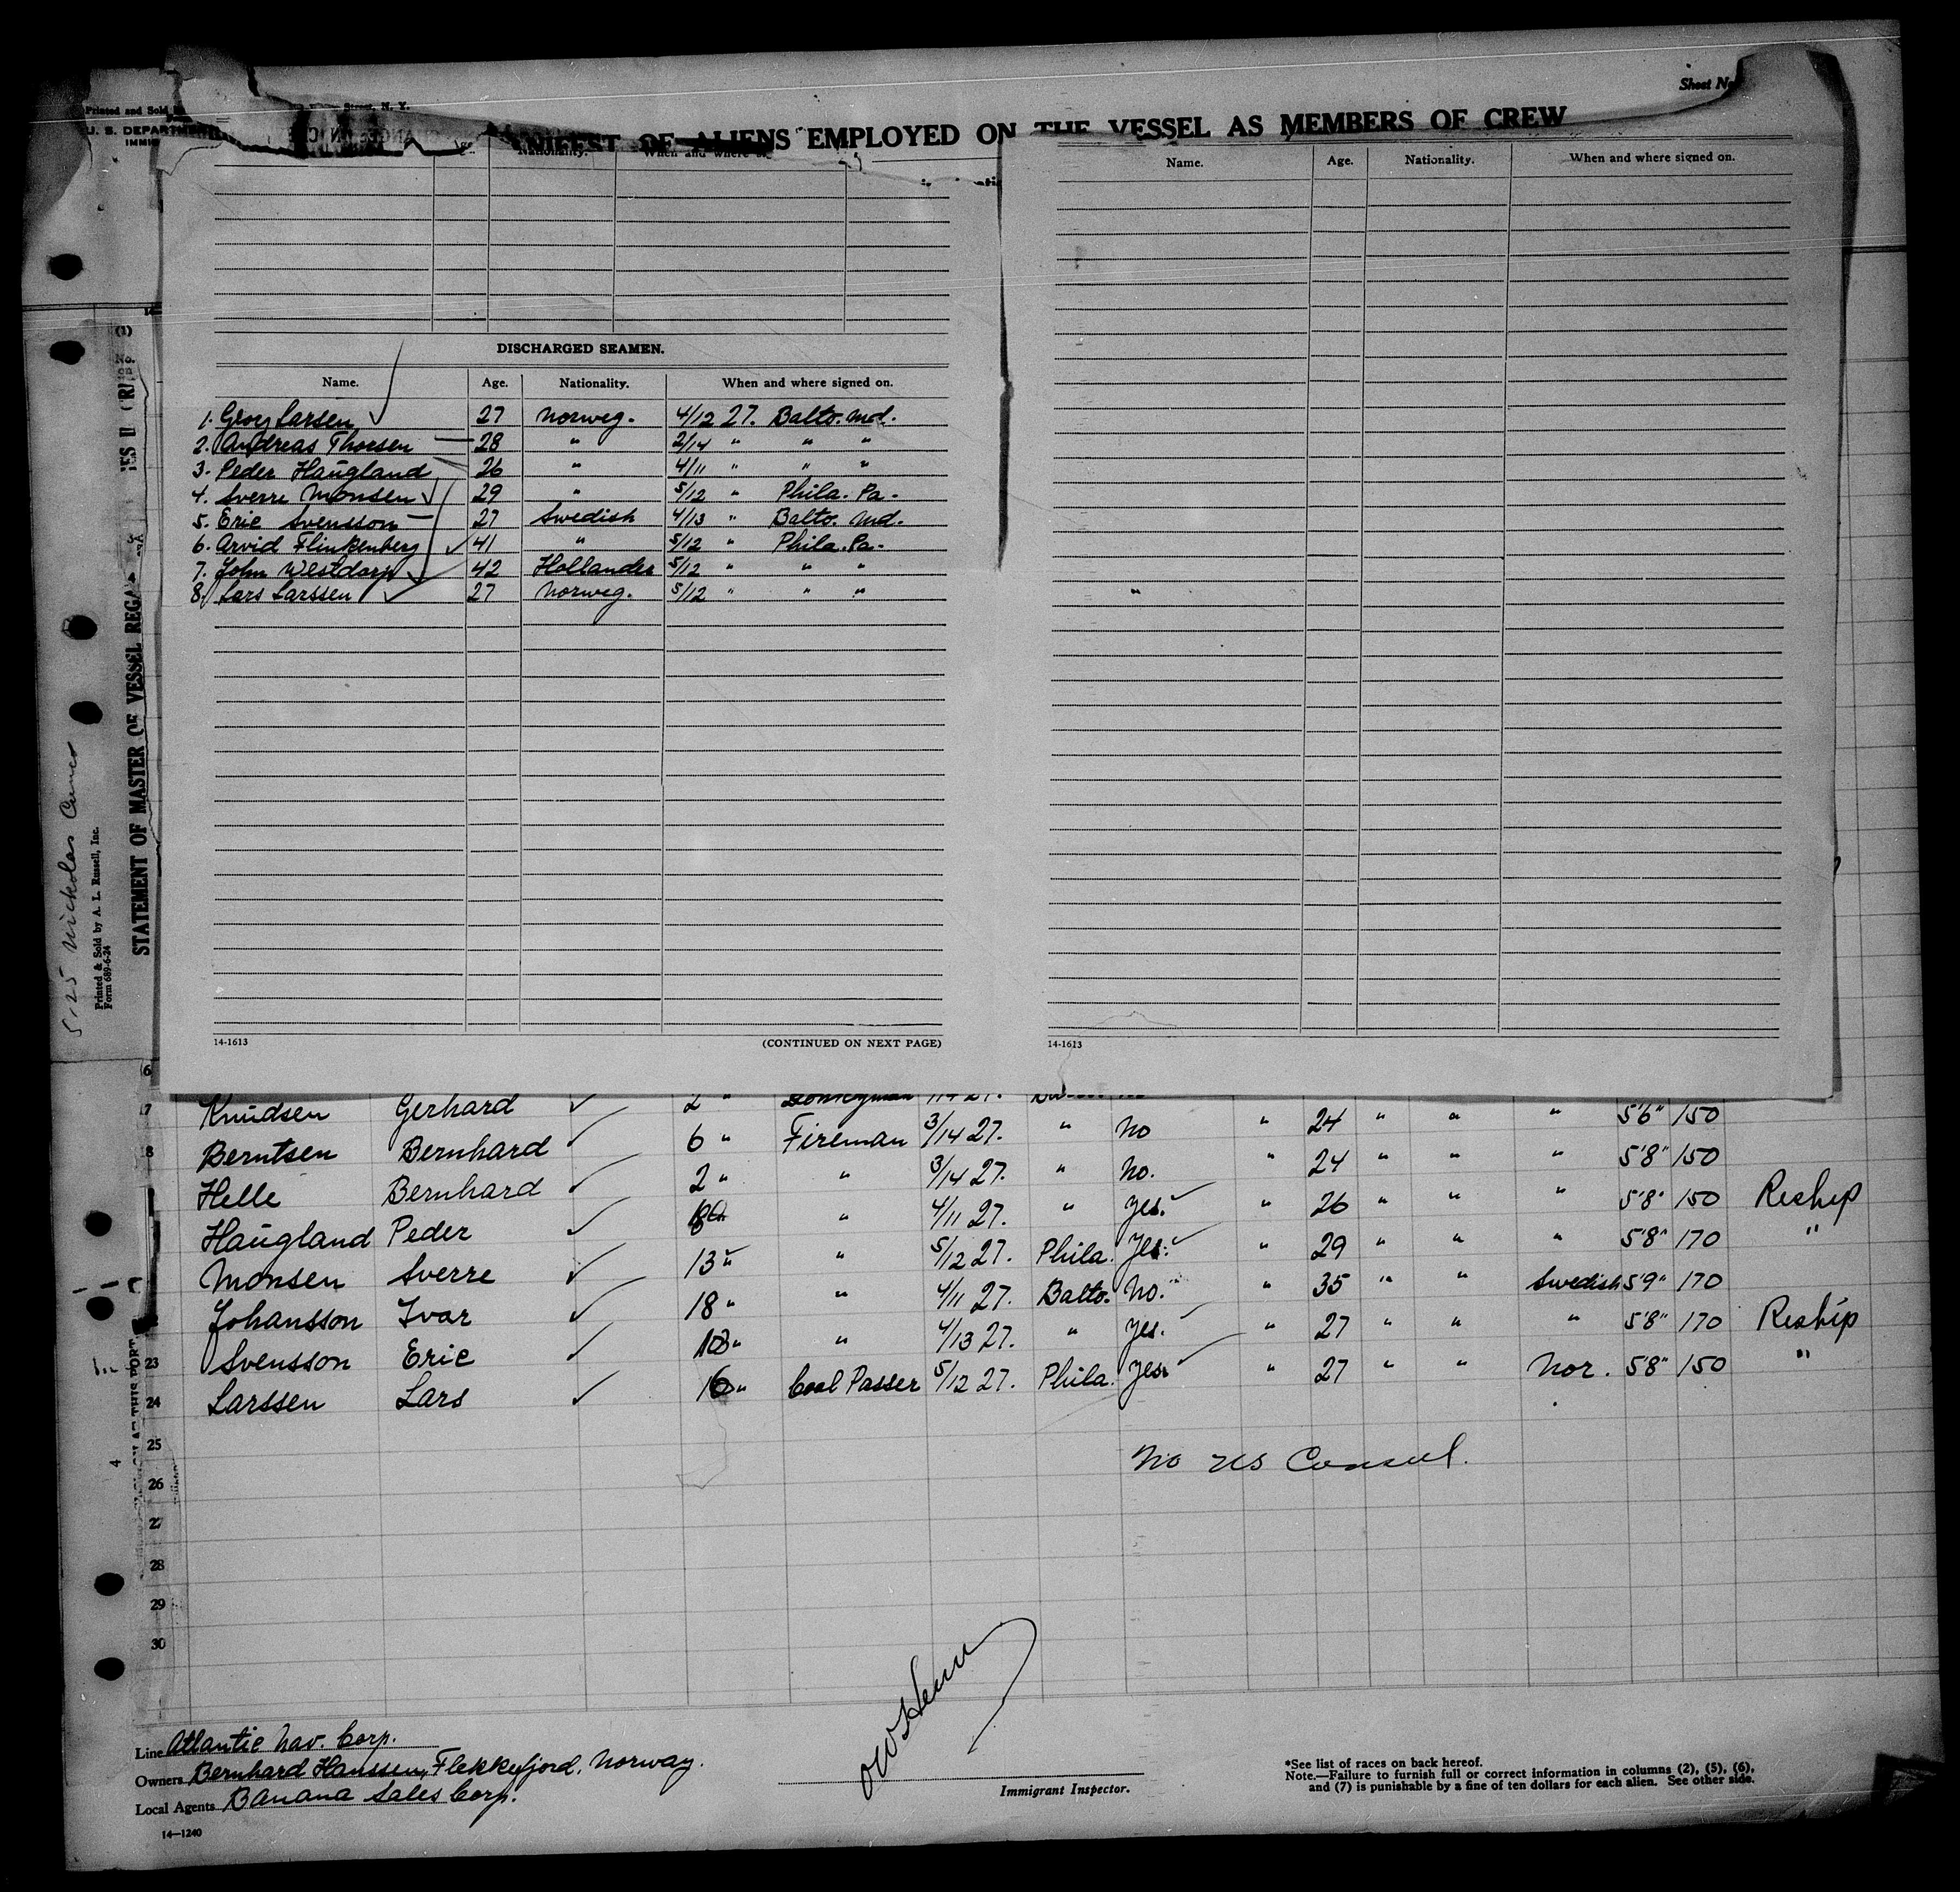 Sheet No
Printed and Sold
Street, N. Y.
U. S. DEPARTMENT
IMMIG
OF ALIENS EMPLOYED ON THE VESSEL AS MEMBERS OF CREW
Nationality. When and where
Name. Age. Nationality. When and where signed on.
DISCHARGED SEAMEN.
Name. Age. Nationality. When and where signed on.
1. Georg Larsen 27 Norweg. 4/12 27. Balto. Md.
2. Andreas Thorsen 28 " 2/14 " " "
3. Peder Haugland 26 " 4/11 " " "
4. Sverre Monsen 29 " 5/12 " Phila. Pa.
5. Eric Svensson 27 Swedish 4/13 " Balto. Md.
6. Arvid Flinkenberg 41 " 5/12 " Phila. Pa.
7. John Westdorp 42 Hollander 5/12 " " "
8. Lars Larssen 27 Norweg. 5/12 " " "
14-1613 (CONTINUED ON NEXT PAGE)
14-1613
STATEMENT OF MASTER OF VESSEL REGA
Printed & Sold by A. L. Russell, Inc.
Form 689-6-24
5-25 Nickolas
17 Knudsen Gerhard 2 " " No " 24 " " " 5'6" 150
18 Berntsen Bernhard 6 " Fireman 3/14 27. " No. " 24 " " " 5'8" 150
Helle Bernhard 2 " " 3/14 27. " Yes. " 26 " " " 5'8" 150 Reship
Haugland Peder " 4/11 27. Phila. Yes. " 29 " " " 5'8" 170 "
Monsen Sverre 13 " " 5/12 27. Balto. No. " 35 " " Swedish 5'9" 170
Johansson Ivar 18 " " 4/11 27. " Yes. " 27 " " " 5'8" 170 Reship
23 Svensson Eric " 4/13 27. Phila. Yes. " 27 " " Nor. 5'8" 150 "
24 Larssen Lars Coal Passer 5/12 27.
25
No US Consul.
26
27
28
29
30
Line Atlantic Nav. Corp.
Owners Bernhard Hanssen, Flekkefjord, Norway.
Local Agents Banana Sales Corp.
14—1240
Immigrant Inspector.
*See list of races on back hereof.
Note.—Failure to furnish full or correct information in columns (2), (5), (6),
and (7) is punishable by a fine of ten dollars for each alien. See other side.